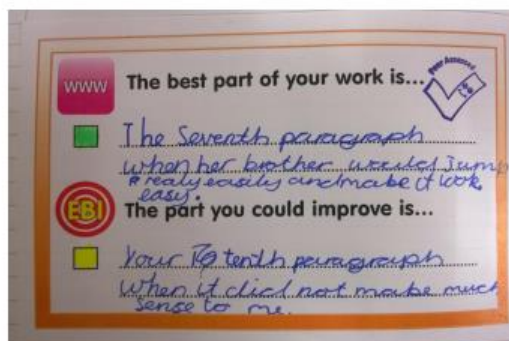 WWW The best part of your work is...
Peer Assessed
The Seventh paragraph
when her brother would Jump
realy easily and make it look
easy.
EBI The part you could improve is...
Your tenth paragraph
when it did not make much
sense to me.